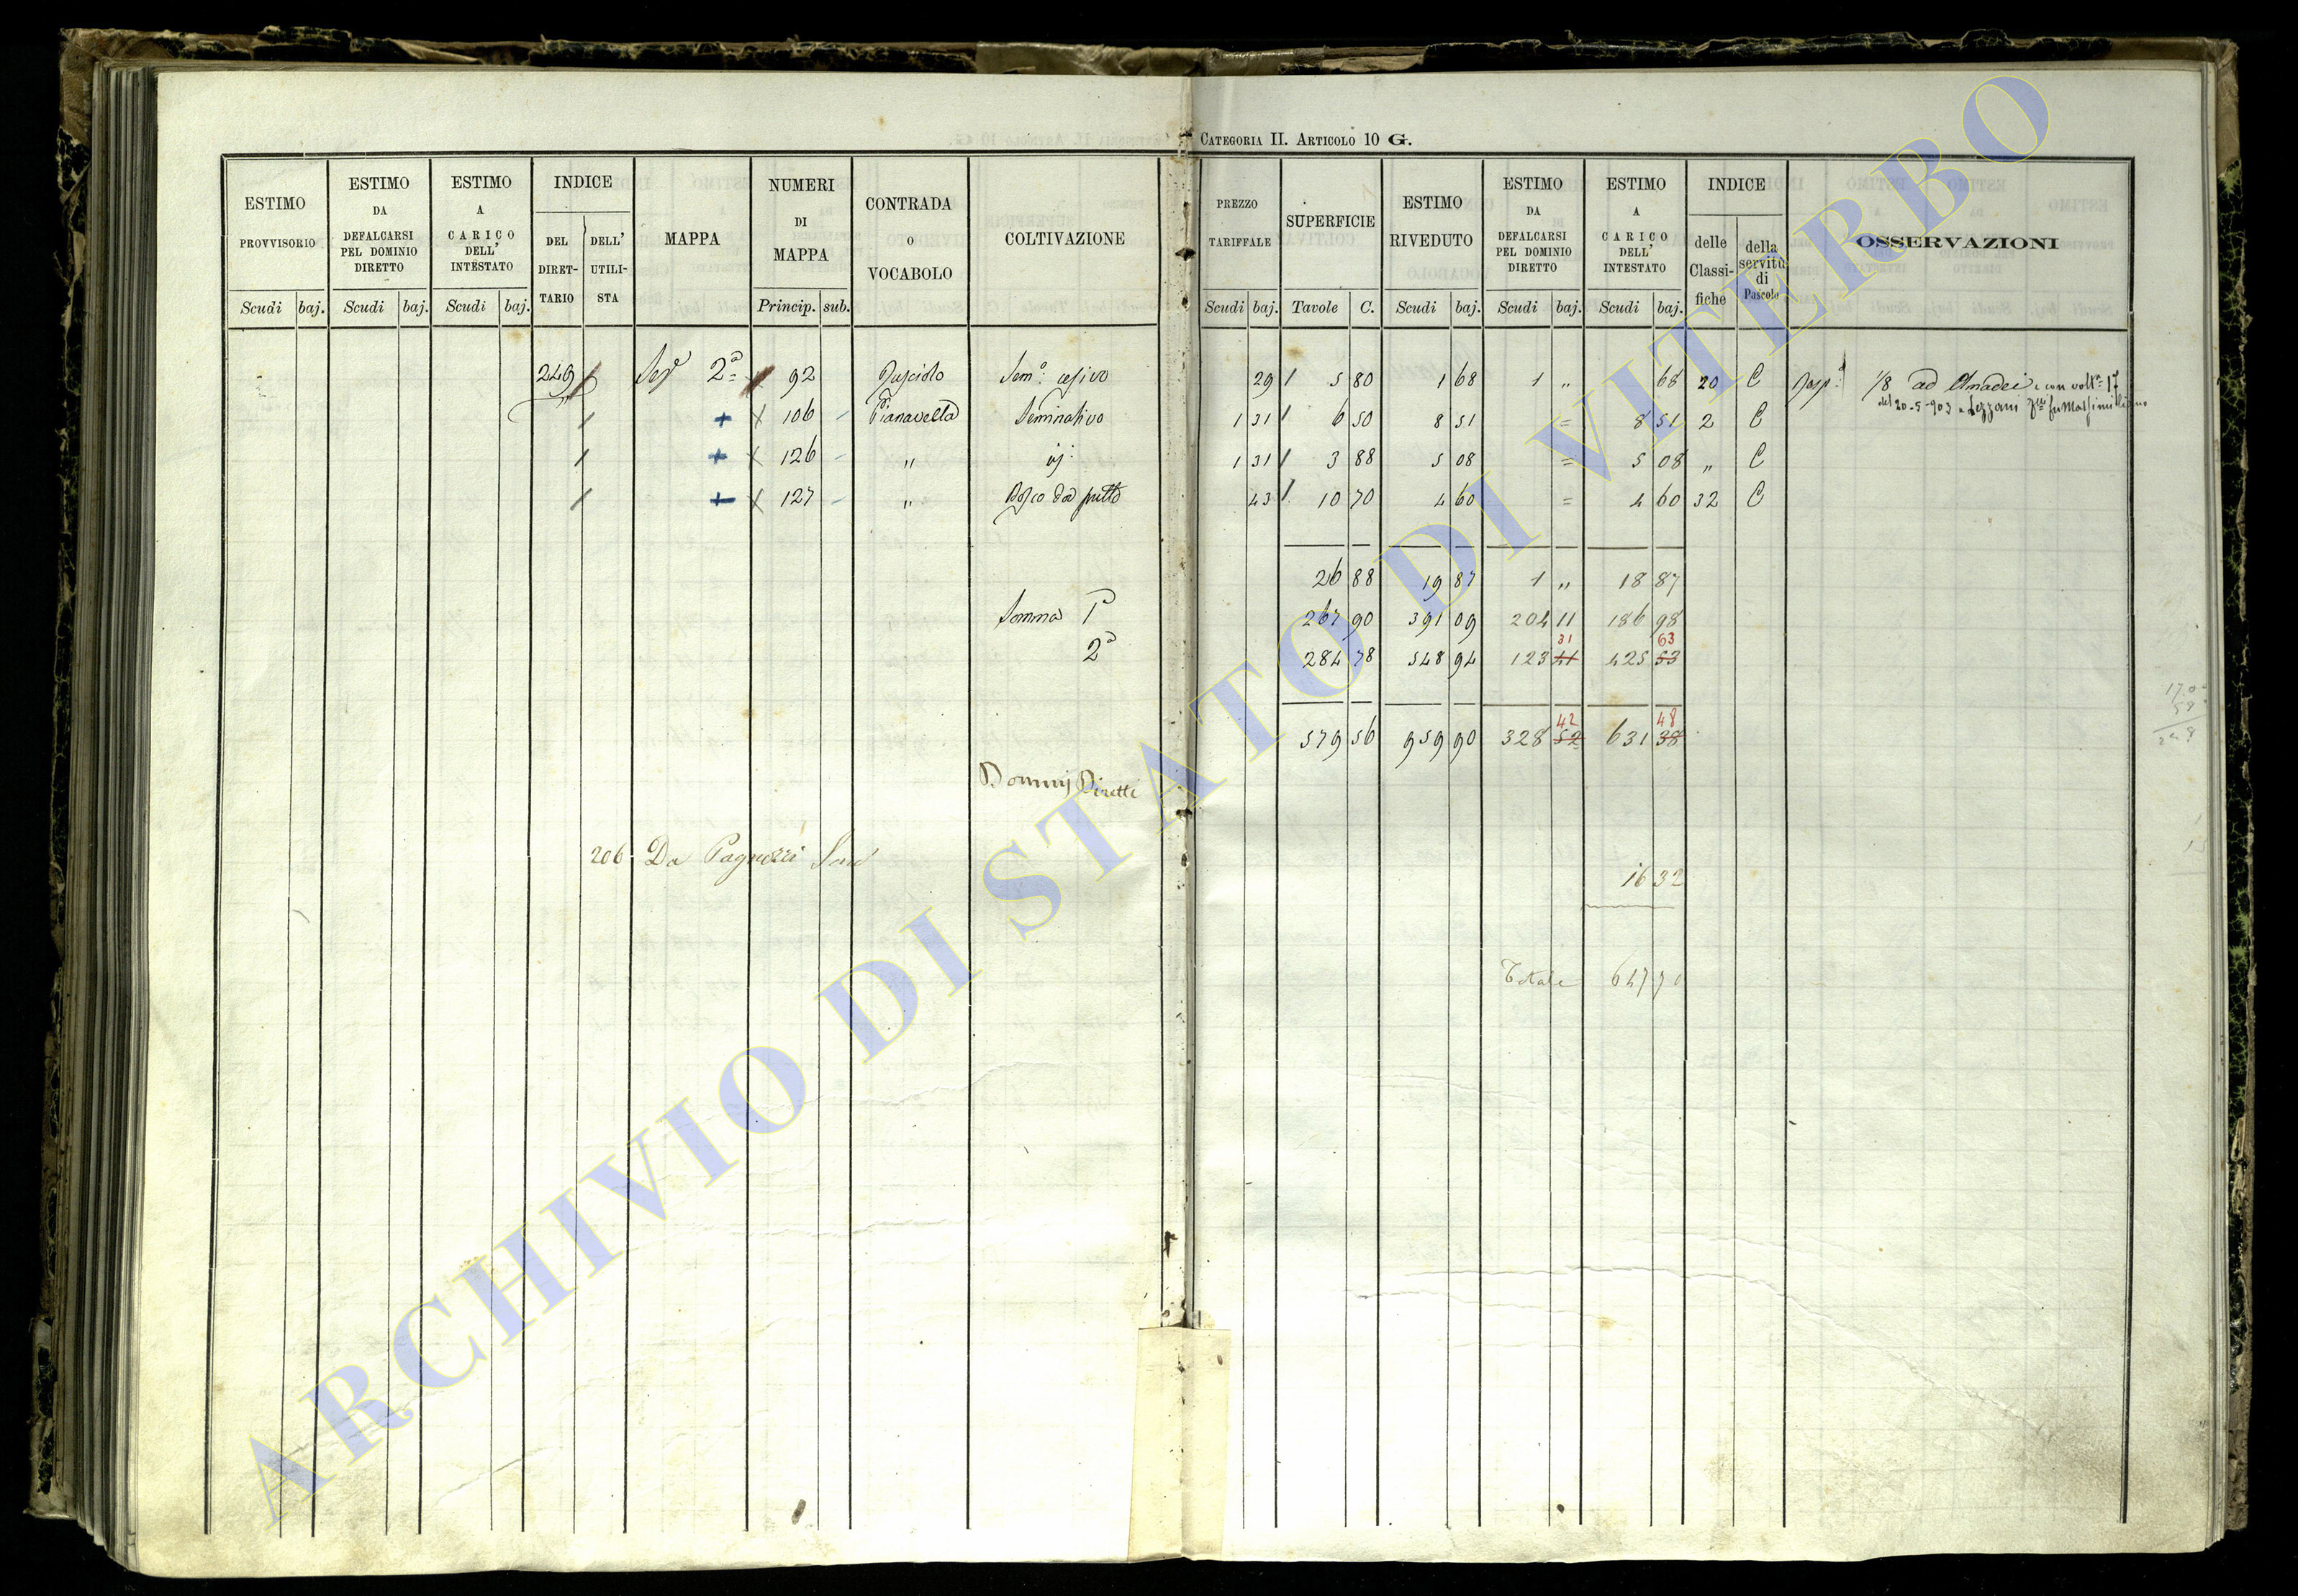 CATEGORIA II. ARTICOLO 10 G.
ESTIMO PROVVISORIO Scudi baj.
ESTIMO DA DEFALCARSI PEL DOMINIO DIRETTO Scudi baj.
ESTIMO A CARICO DELL' INTESTATO Scudi baj.
INDICE DEL DIRETTARIO DELL' UTILISTA
MAPPA
NUMERI DI MAPPA Princip. sub.
CONTRADA O VOCABOLO
COLTIVAZIONE
PREZZO TARIFFALE Scudi baj.
SUPERFICIE Tavole C.
ESTIMO RIVEDUTO Scudi baj.
ESTIMO DA DEFALCARSI PEL DOMINIO DIRETTO Scudi baj.
ESTIMO A CARICO DELL' INTESTATO Scudi baj.
INDICE delle Classifiche della servitù di Pascolo
OSSERVAZIONI
249 2ª 92 Semº 29 5 80 1 68 1 " 68 20 C 1/8 ad Amadei e con volt.ª 17
del 20-5-903 a
+ X 106 Pianavella Seminativo 1 31 6 50 8 51 = 8 51 2 C
+ X 126 " id: 1 31 3 88 5 08 = 5 08 " C
+ X 127 " Bosco 43 10 70 4 60 = 4 60 32 C
26 88 19 87 1 " 18 87
Somma 1ª 267 90 391 09 204 11 186 98
31 63
2ª 284 78 548 94 123 41 425 53
42 48
579 56 959 90 328 52 631 38
Dominj Diretti
206 Da Pagnozzi
16 32
Totale 647 70
ARCHIVIO DI STATO DI VITERBO